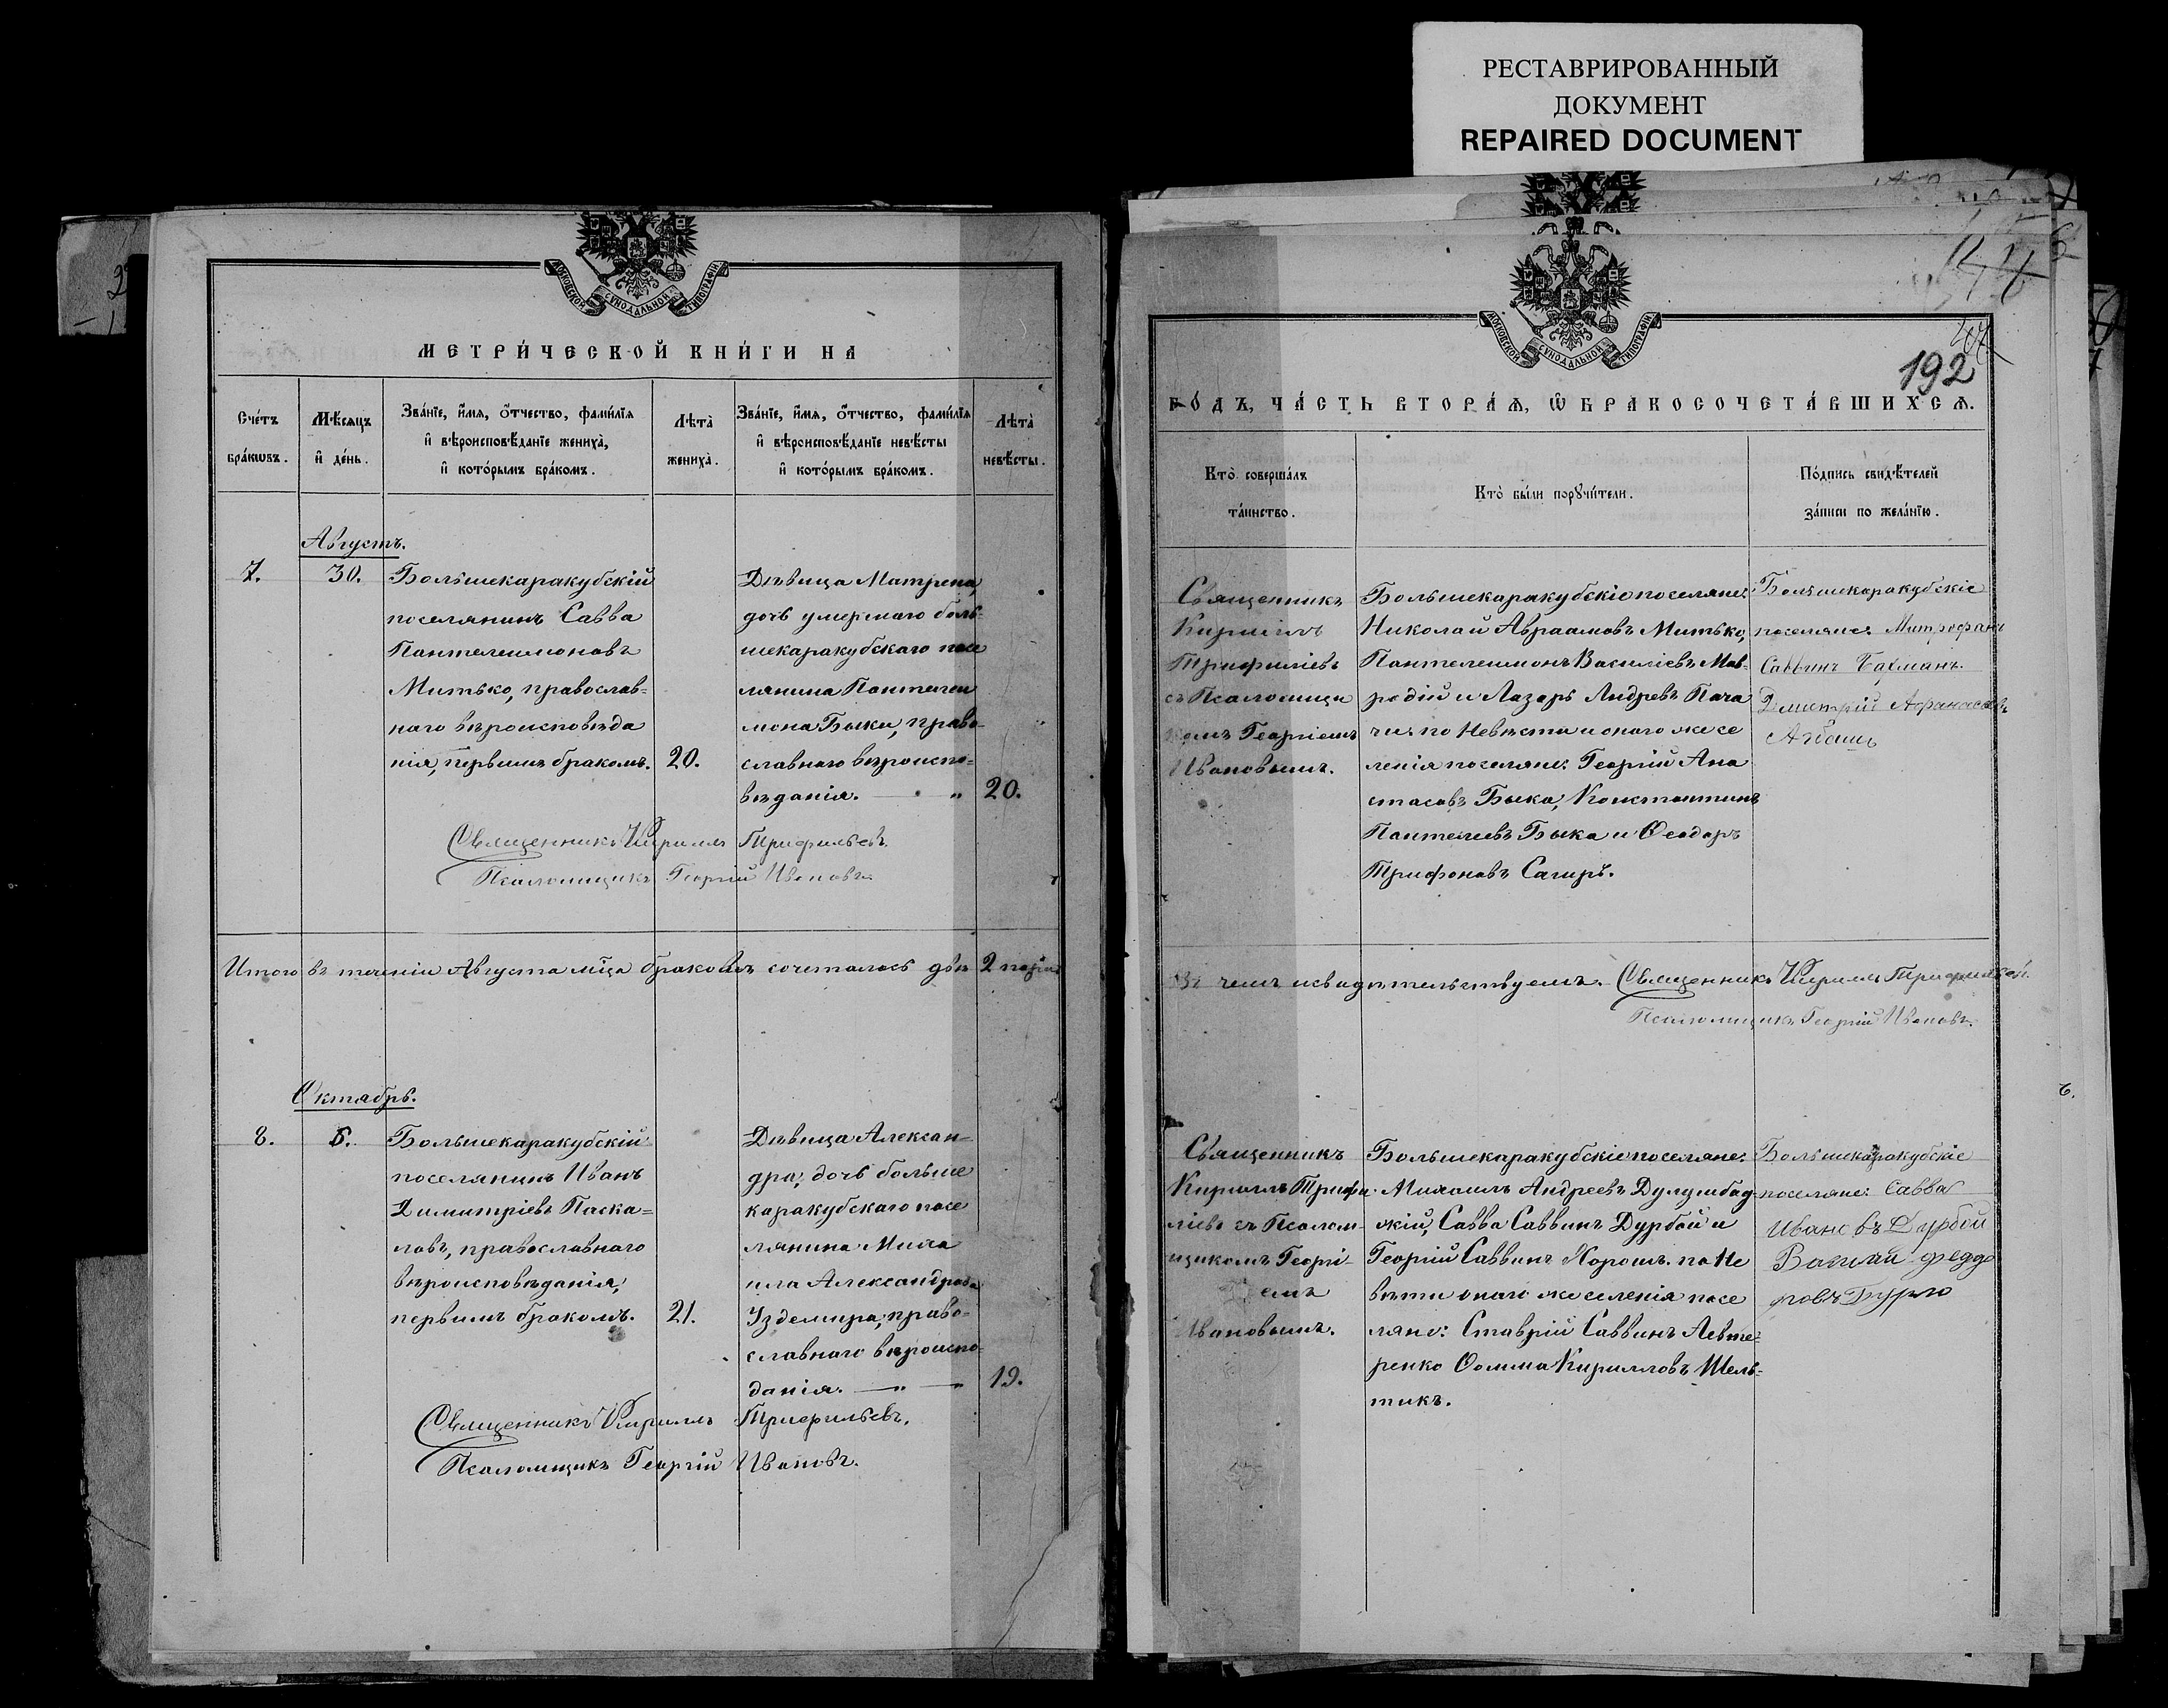 РЕСТАВРИРОВАННЫЙ
ДОКУМЕНТ
REPAIRED DOCUMENT
МОСКОВСКОЙ СУНОДАЛЬНОЙ ТИПОГРАФІИ
МЕТРИ́ЧЕСКОЙ КНИ́ГИ НА
Сче́тъ
бра́кѡвъ.
Мѣ́сяцъ
и҆ де́нь.
Зва́нїе, и҆́мѧ, ѻ҆́тчество, фами́лїѧ
и҆ вѣроисповѣ́данїе жениха̀,
и҆ кото́рымъ бра́комъ.
Лѣта̀
жениха̀.
Зва́нїе, и҆́мѧ, ѻ҆́тчество, фами́лїѧ
и҆ вѣроисповѣ́данїе невѣ́сты
и҆ кото́рымъ бра́комъ.
Лѣта̀
невѣ́сты.
Августъ.
7.
30.
Большекаракубскій
поселянинъ Савва
Пантелеимоновъ
Митько, православ-
наго вѣроисповѣда
нія, первымъ бракомъ.
20.
Дѣвица Матрена,
дочь умершаго боль-
шекаракубскаго посе
лянина Пантелеи
мона Быки, право-
славнаго вѣроиспо-
вѣданія. — „
20.
Священникъ Кириллъ Трифильевъ.
Псаломщикъ Георгій Ивановъ.
Итого въ теченіи Августа м̃ца бракомъ сочеталось двѣ 2 пары
Октябрь.
8.
6.
Большекаракубскій
поселянинъ Иванъ
Димитріевъ Паска-
ловъ, православнаго
вѣроисповѣданія,
первымъ бракомъ.
21.
Дѣвица Алексан-
дра, дочь больше
каракубскаго посе
лянина Миха
ила Александрова
Уздемира, право-
славнаго вѣроиспо-
данія. — „ —
19.
Священникъ Кириллъ Трифильевъ.
Псаломщикъ Георгій Ивановъ.
МОСКОВСКОЙ СУНОДАЛЬНОЙ ТИПОГРАФІИ
192
ГО́ДЪ, ЧА́СТЬ ВТОРА́Ѧ, Ѡ҆ БРАКОСОЧЕТА́ВШИХСѦ.
Кто̀ соверша́лъ
та́инство.
Кто̀ бы́ли порꙋчи́тели.
По́дпись свидѣ́телей
за́писи по жела́нїю.
Священникъ
Кириллъ
Трифиліевъ
съ Псаломщи
комъ Георгіемъ
Ивановымъ.
Большекаракубскіе поселяне:
Николай Авраамовъ Митько,
Пантелеимонъ Василіевъ Мав-
родій и Лазарь Андреевъ Пача
чи: по Невѣсти и онаго же се
ленія поселяне: Георгій Ана
стасовъ Быка, Константинъ
Пантелеевъ Быка и Ѳеодоръ
Трифоновъ Сагиръ.
Большекаракубскіе
поселяне: Митрофанъ
Саввинъ Бахманъ.
Дмитрій Афанасіевъ
Въ чемъ и свидѣтельствуемъ. Священникъ Кириллъ Трифильевъ.
Псаломщикъ Георгій Ивановъ.
Священникъ
Кириллъ Трифи
ліевъ съ Псалом-
щикомъ Георгі-
емъ
Ивановымъ.
Большекаракубскіе поселяне:
Михаилъ Андреевъ Дулумбад-
жій, Савва Саввинъ Дурбой и
Георгій Саввинъ Хорошъ. по Не
вѣсти онаго же селенія посе
ляне: Ставрій Саввинъ Левте-
ренко Ѳомма Кирилловъ Шель-
тикъ.
Большекаракубскіе
поселяне: Савва
Ивановъ Дурбой
Василий Феддо